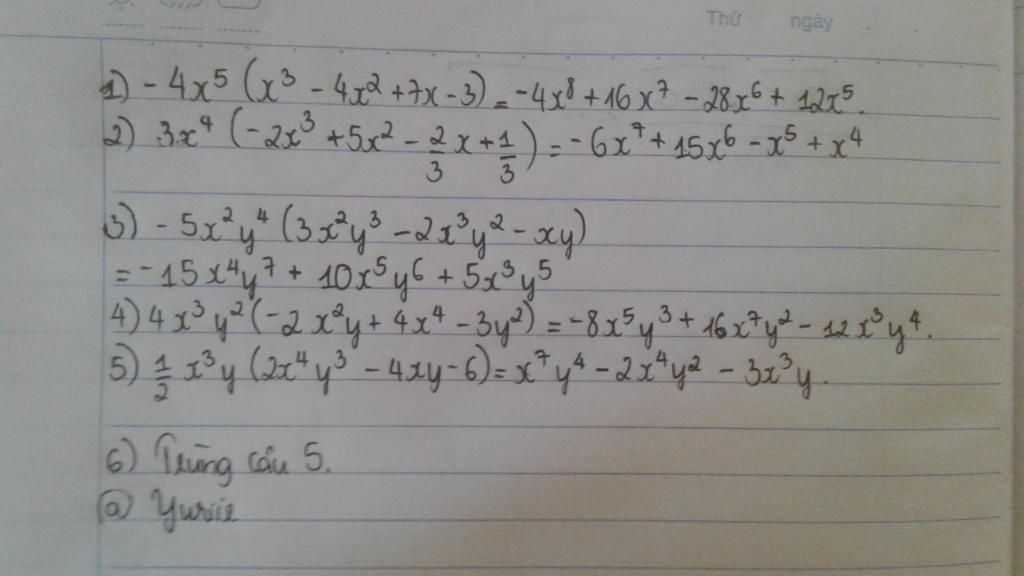 Thứ ngày
1) -4x⁵ (x³ - 4x² + 7x - 3) = -4x⁸ + 16x⁷ - 28x⁶ + 12x⁵.
2) 3x⁴ (-2x³ + 5x² - 2/3 x + 1/3) = -6x⁷ + 15x⁶ - x⁵ + x⁴
3) -5x²y⁴ (3x²y³ - 2x³y² - xy)
= -15x⁴y⁷ + 10x⁵y⁶ + 5x³y⁵
4) 4x³y² (-2x²y + 4x⁴ - 3y²) = -8x⁵y³ + 16x⁷y² - 12x³y⁴.
5) 1/2 x³y (2x⁴y³ - 4xy - 6) = x⁷y⁴ - 2x⁴y² - 3x³y.
6) Trùng câu 5.
@ Yuriie